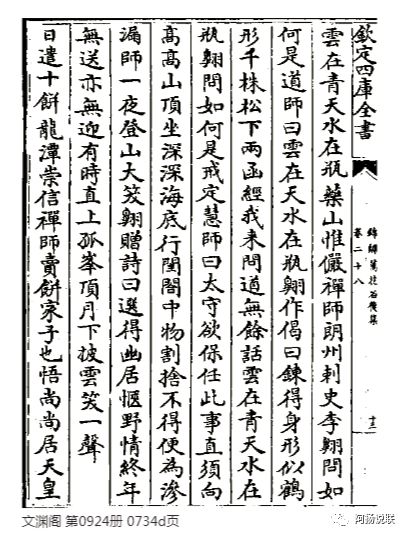 欽定四庫全書
錦繡萬花谷後集
卷二十八
十三
雲在青天水在瓶藥山惟儼禪師朗州刺史李翺問如
何是道師曰雲在天水在瓶翺作偈曰鍊得身形似鶴
形千株松下兩函經我来問道無餘話雲在青天水在
瓶翺問如何是戒定慧師曰太守欲保任此事直須向
高高山頂坐深深海底行閨閤中物割捨不得便為滲
漏師一夜登山大笑翺贈詩曰選得幽居愜野情終年
無送亦無迎有時直上孤峯頂月下披雲笑一聲
日遣十餅龍潭崇信禪師賣餅家子也悟尚尚居天皇
文渊阁 第0924册 0734d页
河扬说联